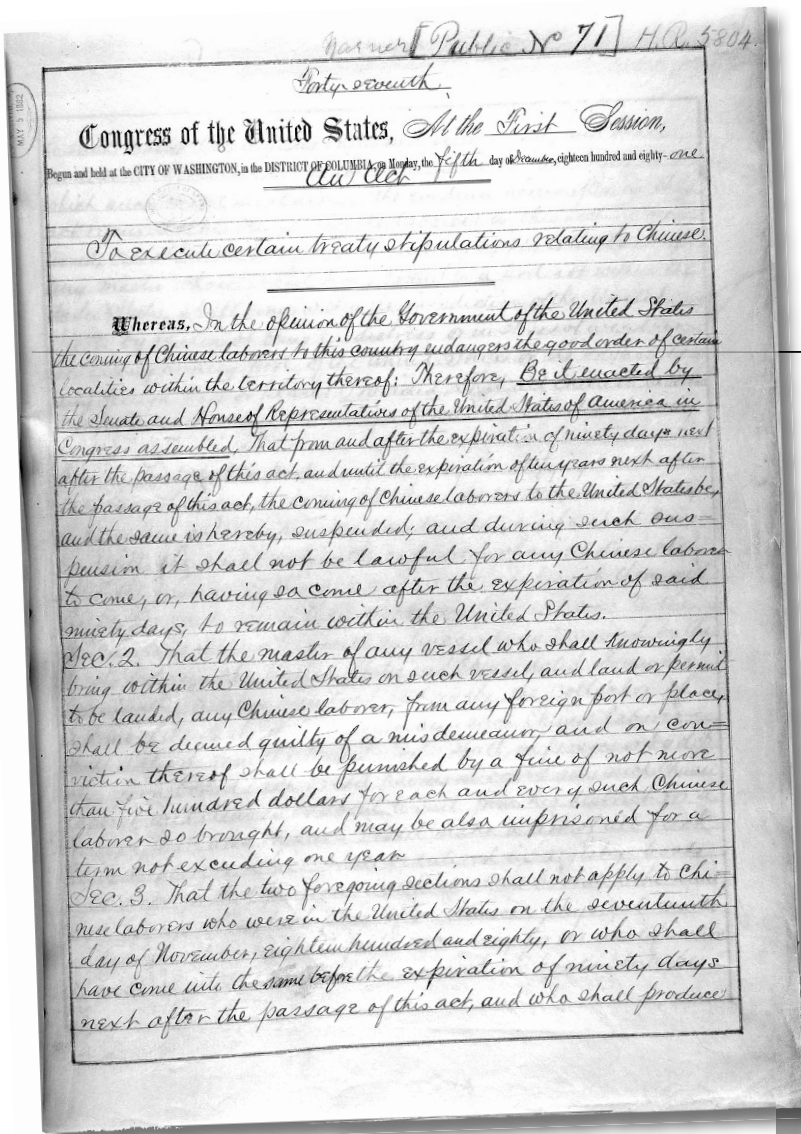 [Public No 71] H.R. 5804.
Forty-seventh
Congress of the United States, At the First Session,
Begun and held at the CITY OF WASHINGTON, in the DISTRICT OF COLUMBIA, on Monday, the fifth day of December, eighteen hundred and eighty-one
An Act
MAY 5 1882
To execute certain treaty stipulations relating to Chinese.
Whereas, In the opinion of the Government of the United States
the coming of Chinese laborers to this country endangers the good order of certain
localities within the territory thereof: Therefore, Be it enacted by
the Senate and House of Representatives of the United States of America in
Congress assembled, That from and after the expiration of ninety days next
after the passage of this act, and until the expiration of ten years next after
the passage of this act, the coming of Chinese laborers to the United States be,
and the same is hereby, suspended; and during such sus=
pension it shall not be lawful for any Chinese laborer
to come, or, having so come after the expiration of said
ninety days, to remain within the United States.
Sec. 2. That the master of any vessel who shall knowingly
bring within the United States on such vessel, and land or permit
to be landed, any Chinese laborer, from any foreign port or place,
shall be deemed guilty of a misdemeanor, and on con=
viction thereof shall be punished by a fine of not more
than five hundred dollars for each and every such Chinese
laborer so brought, and may be also imprisoned for a
term not exceeding one year.
Sec. 3. That the two foregoing sections shall not apply to Chi=
nese laborers who were in the United States on the seventeenth
day of November, eighteen hundred and eighty, or who shall
have come into the same before the expiration of ninety days
next after the passage of this act, and who shall produce